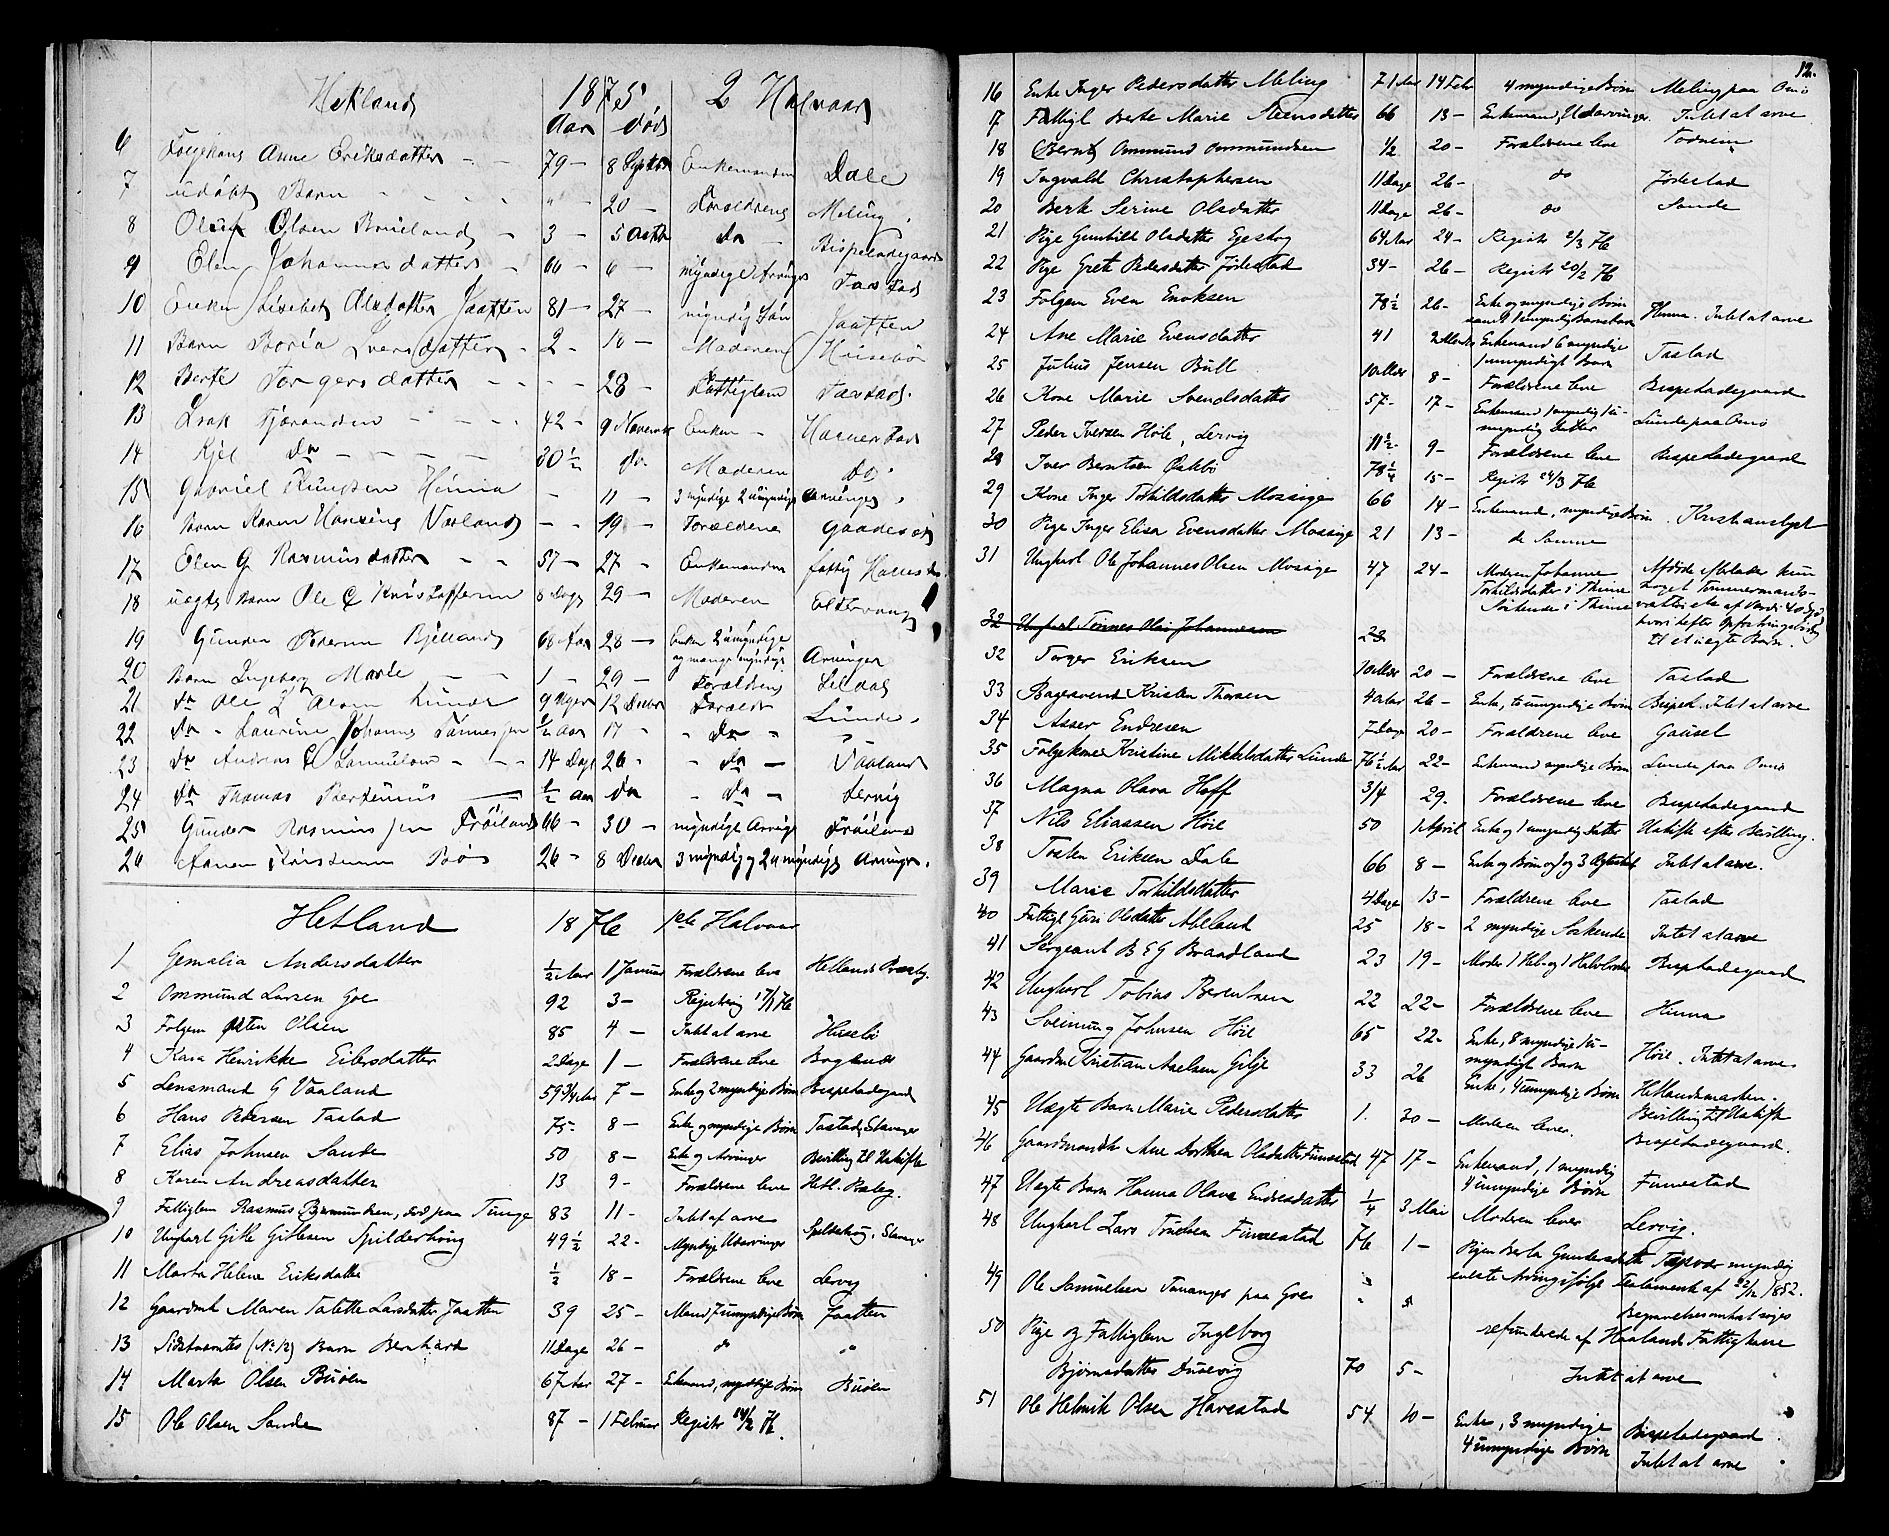 Hetland 1875 2 Halvaar
Aar Død
6 Folgekone Anne Eriksdatter - - 79 - 8 Septbr Enkemanden Dale
7 udøbt Barn - - - - " - 20 - Forældrene Meling
8 Oluf Olsen Bruelands - 3 - 5 Octbr Do - Bispeladegaard
9 Elen Johannesdatter - 66 - 6 - myndige Arvinger Tastad
10 Enken Lisebet Olsdatter Jaatten 81 - 27 - myndig Søn Jaatten
11 Barn Boria Iversdatter - 2 - 10 - Moderen Husebø
12 Berte Torgersdatter - - - - 28 - Fattiglem Tastad
13 Isak Tjørandsen - - - - 42 - 9 Novembr Enken -
14 Kjel Do - - - - 30 ½ Do Moderen Do
15 Gabriel Hinna - 11 - 3 myndige 2 umyndige Arvinger
16 Barn Karen Hansine Vaaland - - 19 - Forældrene
17 Elen G Rasmusdatter - - 57 - 27 - Enkemanden fattig
18 uægte Barn Ole C Kristoffersen 8 Dage 29 - Moderen
19 Gunder Pedersen Bjelland 68 Aar 28 - Enken 2 umyndige
og mange myndige Arvinger
20 Barn Ingeborg Marie - - 1 - 29 - Forældrene
21 Do Ole J Lunde 9 Uger 12 Decbr Forældr Lunde
22 Do - Laurine Johanne Tønnesen ½ Aar 17 - - Do - "
23 Do Andreas Samuelsen - - - 14 Dage 26 - - Do - Vaaland
24 Do Thomas Bertinius - ½ Aar Do - Do - Lervig
25 Gunder Rasmussen Frøiland 66 - 30 - myndige Arvinge Frøiland
26 Bø 26 - 8 Decbr 3 myndig og 2 umyndige Arvinger.
Hetland 1876 1ste Halvaar
1 Gemalia Andersdatter ½ Aar 1 Januar Forældrene leve Hetlands Præstg.
2 Ommund Larsen Goe 92 3 - 17/1 76
3 Folgem Osten Olsen 85 4 - Intet at arve Husebø
4 Kara Henrikke Eilersdatter 2 Dage 1 - Forældrene leve
5 Lensmand G Vaaland 59 3/4 Aar 7 - Enke og 2 myndige Børn Bispeladegaard
6 Hans Pedersen Tastad 75 8 - Enke og myndige Børn Tastad, Stavanger
7 Elias Johnsen Sande 50 8 - Enke og Arvinger Bevilling til Uskifte
8 Karen Andreasdatter 13 9 - Forældrene leve
9 Fattiglem Rasmus død paa Tunge 83 11 - Intet at arve
10 Ungkarl Gitle Gitlesen Spilderhoug 49 ½ 22 - Myndige Udarvinger Spilderhoug, Stavanger
11 Marta Helene Eriksdatter ½ 18 - Forældrene leve Lervig
12 Gaardmk Maren Talette Larsdatter Jaatten 39 25 - Mand 7 umyndige Børn Jaatten
13 Sidstnævntes (No 12) Barn Bernhard 11 Dage 26 - do "
14 Marta Olsen Buøen 67 Aar 27 - Enkemand, myndige Børn Buøen
15 Ole Olsen Sande 87 - 1 Februar Registr 24/2 76.
12.
16 Enke Inger Pedersdatter Meling 71 Aar 14 Febr 4 myndige Børn Meling paa Omø
17 Fattigl Berte Marie Steensdatter 66 13 - Enkemand, Udarvinger. Intet at arve
18 Bernt Ommund Ommundsen ½ 20 - Forældrene leve Todneim
19 Ingvald Christophersen 11 Dage 26 - do Jødestad
20 Berte Serine Olsdatter 11 Dage 26 - do Sande
21 Pige Gunhild Olsdatter Egeskog 64 Aar 24 - Registr 2/3 76
22 Pige Grete Pedersdatter Jødestad 34 - 26 - Registr 20/2 76
23 Folgem Even Enoksen 78 ½ 26 - Enke og myndige Børn
samt 1 umyndig Barnebarn Hinna. Intet at arve
24 Ane Marie Evensdatter 41 2 Marts Enkemand 6 myndige
1 umyndigt Barn Tastad
25 Julius Jensen Bull 10 Mdr 8 - Forældrene leve Bispeladegaard
26 Kone Marie Svendsdatter 57 - 17 - Enkemand 1 myndig 1 u-
myndig datter Lunde paa Omø
27 Peder Iversen Høle, Lervig 11 ½ 9 - Forældrene leve Bispeladegaard
28 Iver Berntsen Oskebø 78 ½ 15 - Registr 24/3 76
29 Kone Inger Torkildsdatter Mossige 66 14 - Enkemand, myndige Børn. Kristianslyst
30 Pige Inger Elisa Evensdatter Mossige 21 13 - de Samme
31 Ungkarl Ole Johannes Olsen Mossige 47 24 - Modren Johanne Afdøde
Torkilsdatter i Thime
Søskende i Thime
til et uægte Barn.
32 Ungkarl Tønnes Olai Johannesen 28
32 Torger Eriksen 10 Mdr 20 - Forældrene leve Tastad
33 Bagersvend Kristen Thorsen 40 Aar 26 - Enke, 6 umyndige Børn Bispel. Intet at arve
34 Asser Endresen 7 Dage 20 - Forældrene leve Gausel
35 Folgekone Kristine Mikkelsdatter Lunde 76 ½ Aar 22 - Enkemand myndige Børn Lunde paa Omø
36 Magna Olava Hoff 3/4 29. Forældrene leve Bispeladegaard
37 Nils Eliassen Høie 50 1 April Enke og 1 umyndig Datter Uskifte efter Bevilling.
38 Tosten Eriksen Dale 66 8 - Enke og Børn Intet at arve.
39 Marie Torkildsdatter 4 Dage 13 - Forældrene leve Tastad
40 Fattigl Guri Olsdatter Aleland 25 18 - 2 myndige Søskende Intet at arve
41 Sergeant B E G Braadland 23 19 - Moder 1 Hel- og 1 Halvbroder Bispeladegaard
42 Ungkarl Tobias Berentsen 22 22 - Forældrene leve Hinna
43 Sveinung Johnsen Høie 65 22 - Enke, 8 myndige 1 u-
myndigt Barn Høie. Intet at arve
44 Gaardm Kristian Axelsen Gilje 33 26 Enke, 4 umyndige Børn Hetlandsmarken.
Bevilling til Uskifte
45 Uægte Barn Marie Pedersdatter 1. 30 - Modren lever. Bispeladegaard.
46 Gaardmandsk Ane Dorthea Olsdatter Finnestad 47 17 - Enkemand, 1 myndig
4 umyndige Børn Finnestad
47 Uægte Barn Hanna Olava Endresdatter ¼ 3 Mai Modren lever Lervig.
48 Ungkarl Lars Trulsen Finnestad 76 1 - Pigen Berta Gundersdatter Tasvær myndig
eneste Arving ifølge Testamente af 22/12 1852.
49 Ole Samuelsen Tananger paa Goe " "
Begravelsesomkost. søges
refunderede af Haalands Fattigkasse
50 Pige og Fattiglem Ingeborg
Bjørnsdatter Dusevig 70 5 - Intet at arve
51 Ole Helmik Olsen Harestad 54 10 - Enke, 3 myndige
4 umyndige Børn Bispeladegaard
Intet at arve